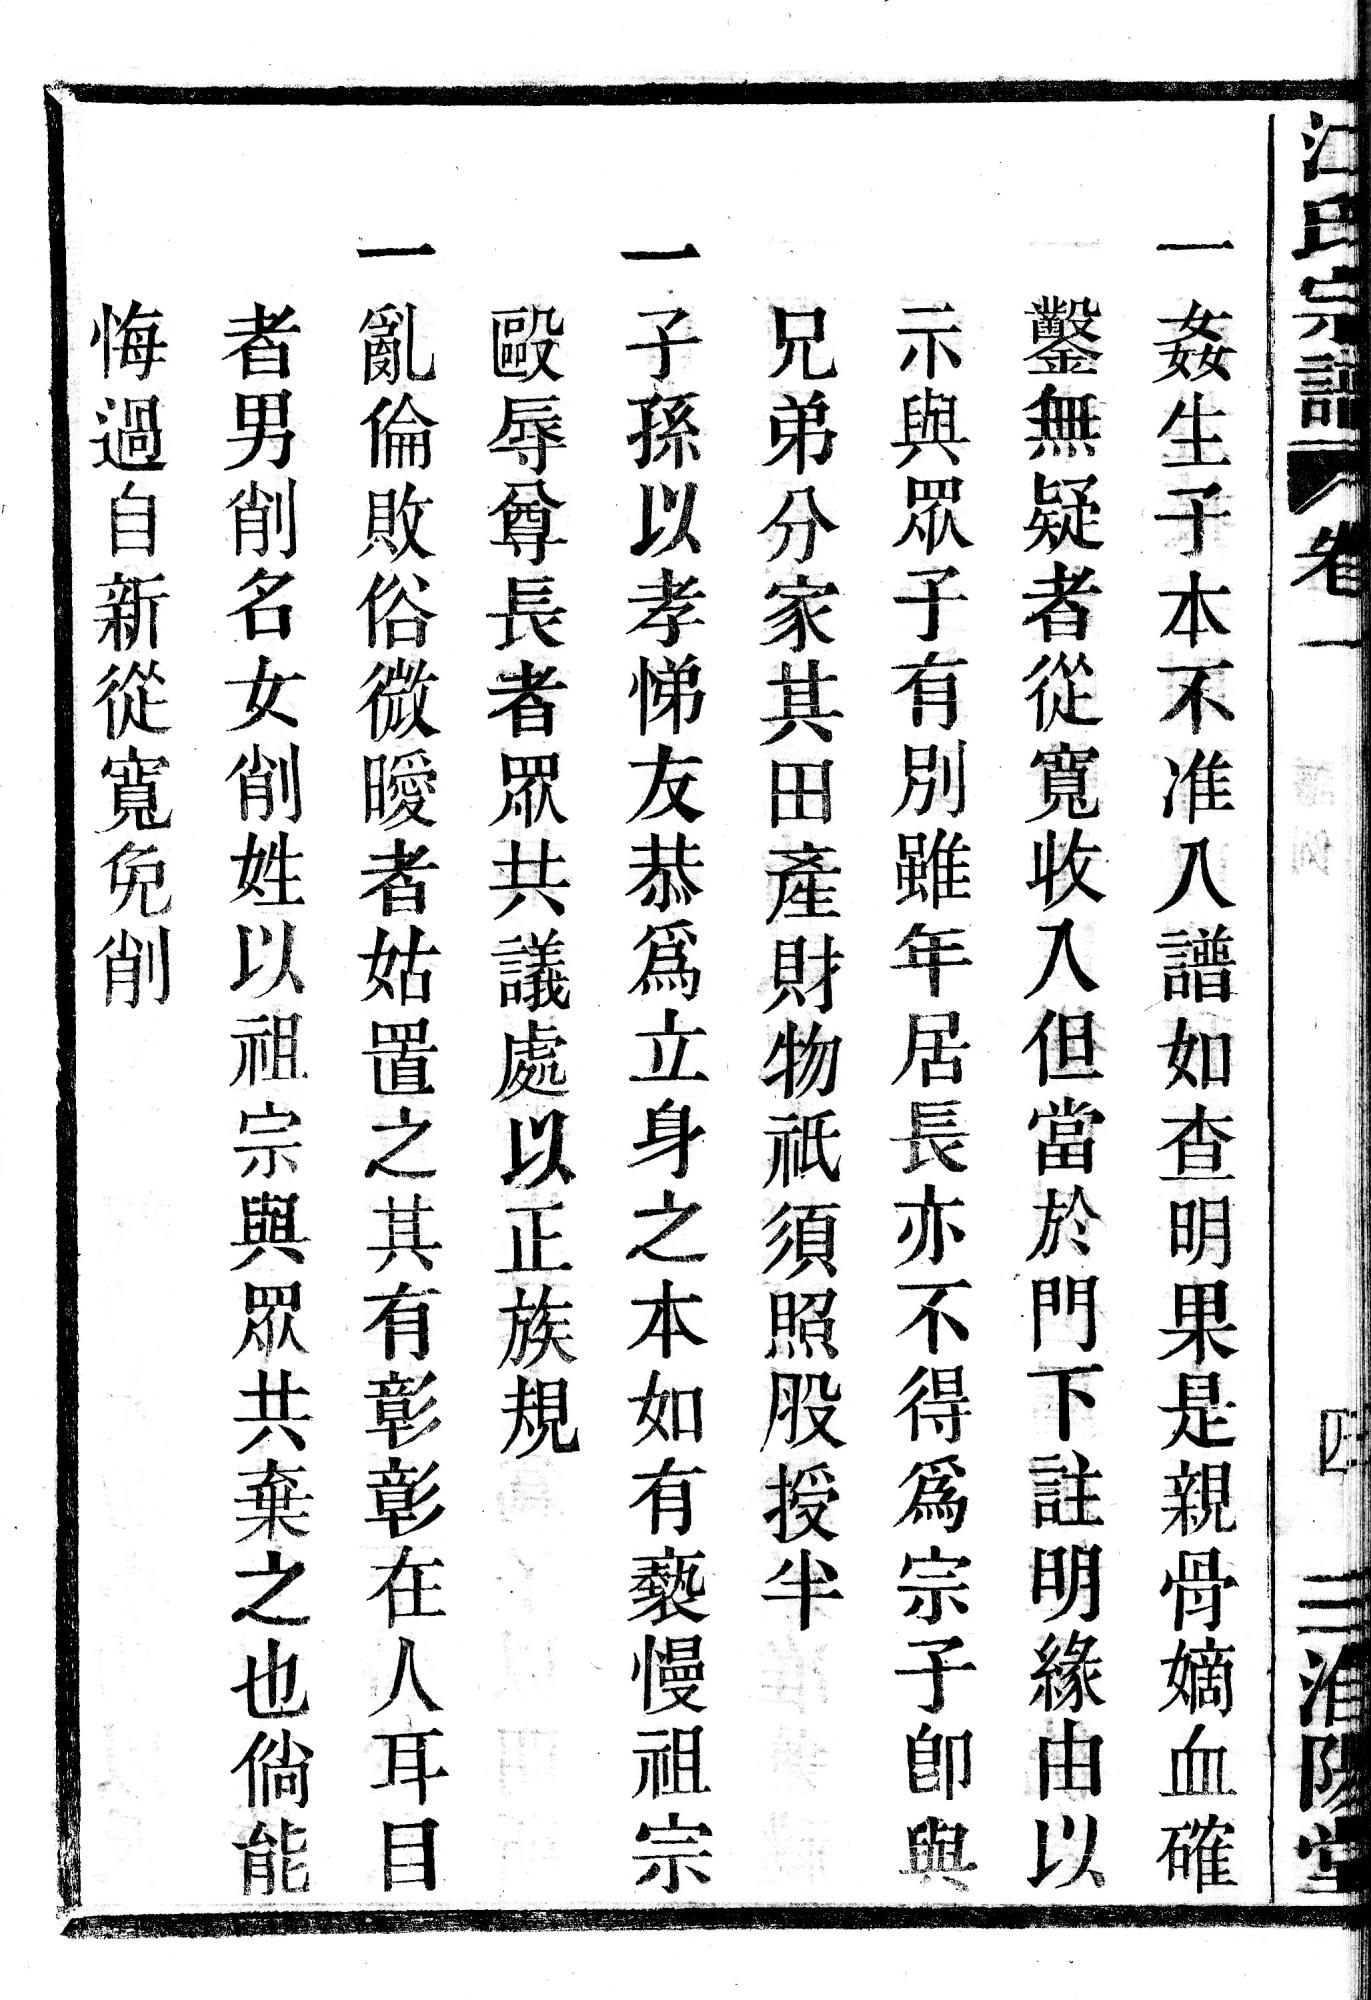 江氏宗譜 卷一 四 三淮陽堂
一姦生子本不准入譜如查明果是親骨嫡血確
鑿無疑者從寬收入但當於門下註明緣由以
示與眾子有別雖年居長亦不得爲宗子卽與
兄弟分家其田產財物祇須照股授半
一子孫以孝悌友恭爲立身之本如有褻慢祖宗
毆辱尊長者眾共議處以正族規
一亂倫敗俗微曖者姑置之其有彰彰在人耳目
者男削名女削姓以祖宗與眾共棄之也倘能
悔過自新從寬免削